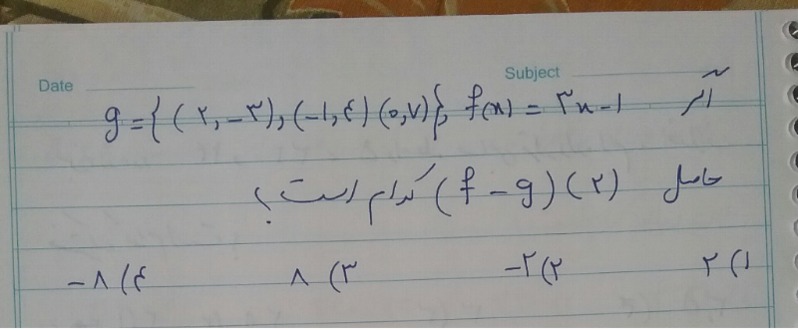 Date
Subject
اگر f(x) = ۳x-۱ , g={(۲,-۳),(-۱,۴)(۵,۷)}
حاصل (f-g)(۲) کدام است؟
۱) ۲ ۲) -۲ ۳) ۸ ۴) -۸